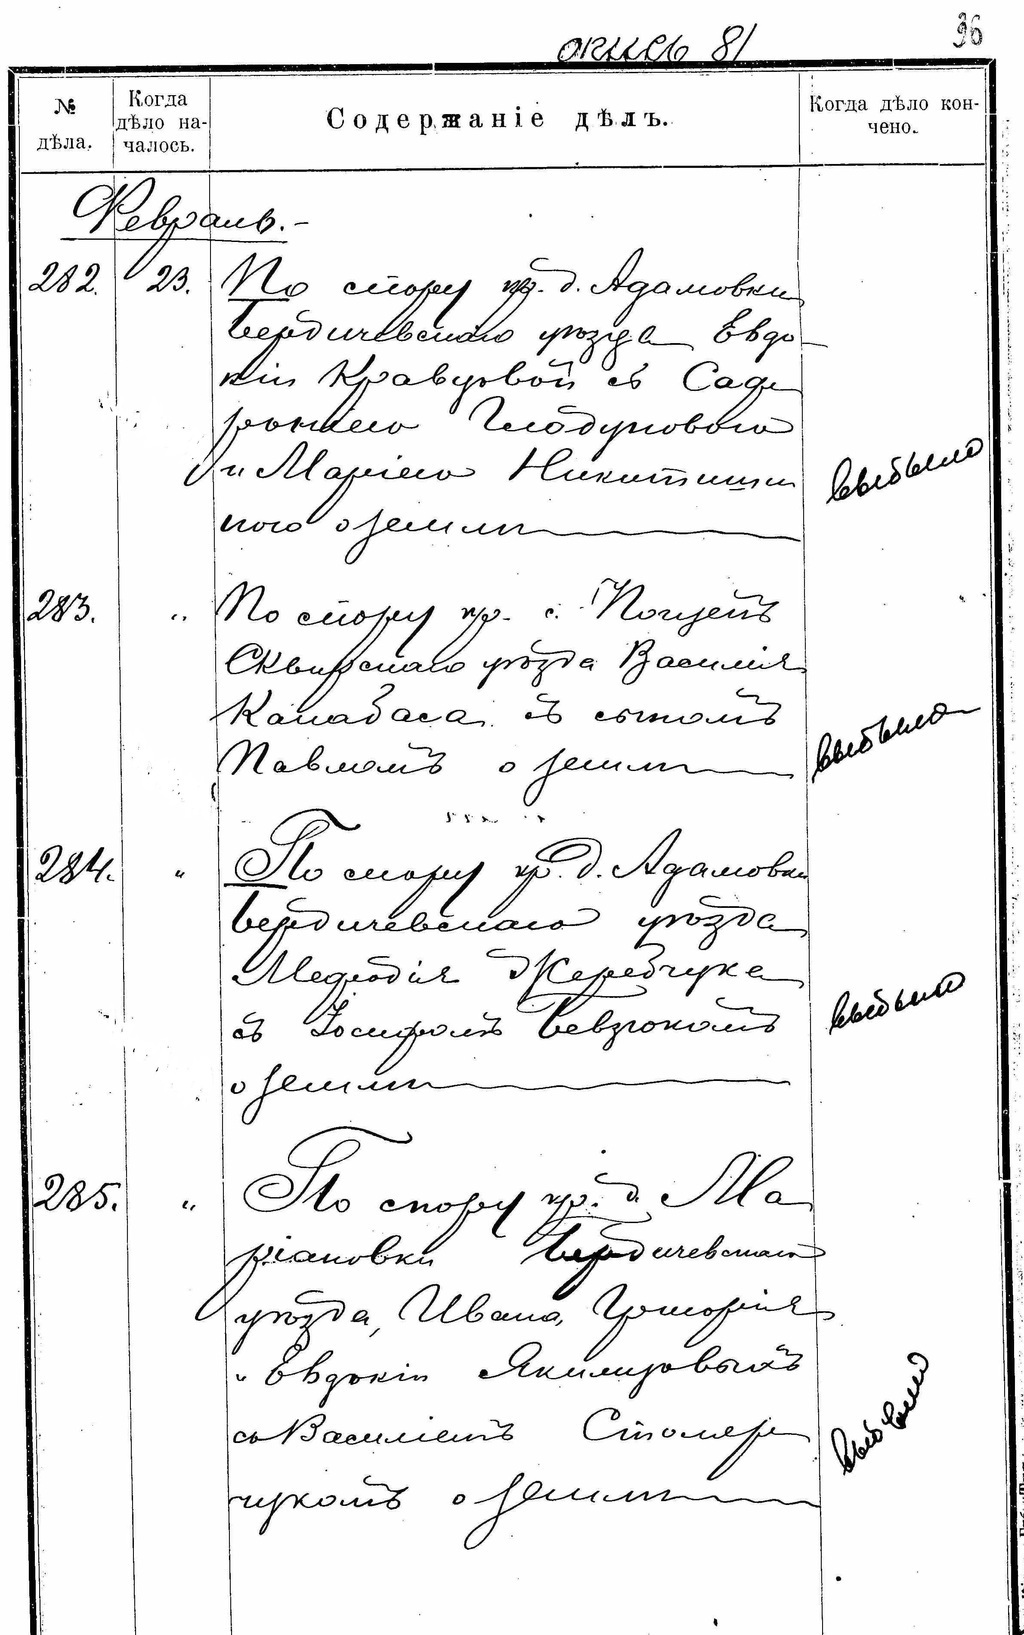 опись 81
36
№ дѣла.
Когда дѣло на-
чалось.
Содержаніе дѣлъ.
Когда дѣло кон-
чено.
Февраль.-
282. 23. По спору кр. д. Адамовки
Бердичевскаго уѣзда Евдо-
кіи Кравцовой съ
и Маріею
о землѣ
выбыло
283. " По спору кр. с.
Сквирскаго уѣзда Василія
Калабаса съ сыномъ
Павломъ о землѣ
выбыло
284. " По спору кр. д. Адамовки
Бердичевскаго уѣзда
Мефодія Жеребчука
съ Іосифомъ Бевзюкомъ
о землѣ
выбыло
285. " По спору кр. д. Ма
ріановки Бердичевскаго
уѣзда, Ивана, Григорія
и Евдокіи Якимцовыхъ
съ Василіемъ Столяр
чукомъ о землѣ
выбыло